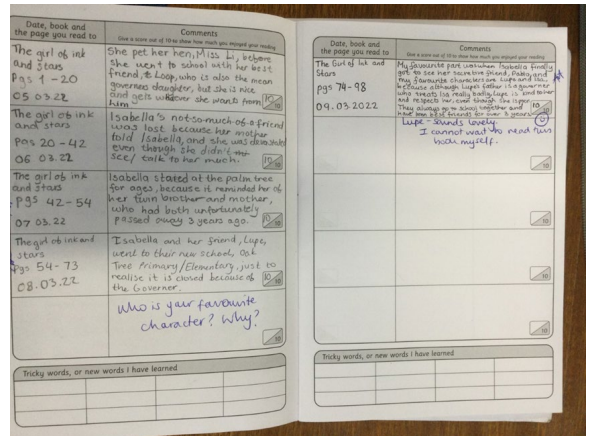 Date, book and
the page you read to
Comments
Give a score out of 10 to show how much you enjoyed your reading
The girl of ink
and stars
Pgs 1 - 20
05 03.22
She pet her hen, Miss Li, before
she went to school with her best
friend, Loop, who is also the mean
governers daughter, but she is nice
and gets whatever she wants from
him
10
The girl of ink and
stars
Pgs 20 - 42
06 03.22
Isabella's not-so-much-of-a friend
was lost because her mother
told Isabella, and she was devastated
even though she didn't
see/talk to her much.
10/10
The girl of ink
and Stars
pgs 42-54
07 03.22
Isabella stated at the palm tree
for ages, because it reminded her of
her twin brother and mother,
who had both unfortunately
passed away 3 years ago.
10/10
The girl of ink and
stars
Pgs 54-73
08.03.22
Isabella and her friend, Lupe,
went to their new school, Oak
Tree Primary/Elementary, just to
realise it is closed because of
the Governer.
10/10
Who is your favourite
character? Why?
10
Tricky words, or new words I have learned
Date, book and
the page you read to
Comments
Give a score out of 10 to show how much you enjoyed your reading
The Girl of Ink and
Stars
pgs 74-98
09.03.2022
My favourite part was when Isabella finally
got to see her secret friend, Pablo, and
my favourite characters are Lupe and Isa,
because although Lupe's father is a governer
who treats Isa really badly, Lupe is kind to her
and respects her, even though she is poor.
They always go to school together and
have been best friends for over 3 years
10/10
Lupe - sounds lovely.
I cannot wait to read this
book myself.
10
10
10
10
Tricky words, or new words I have learned